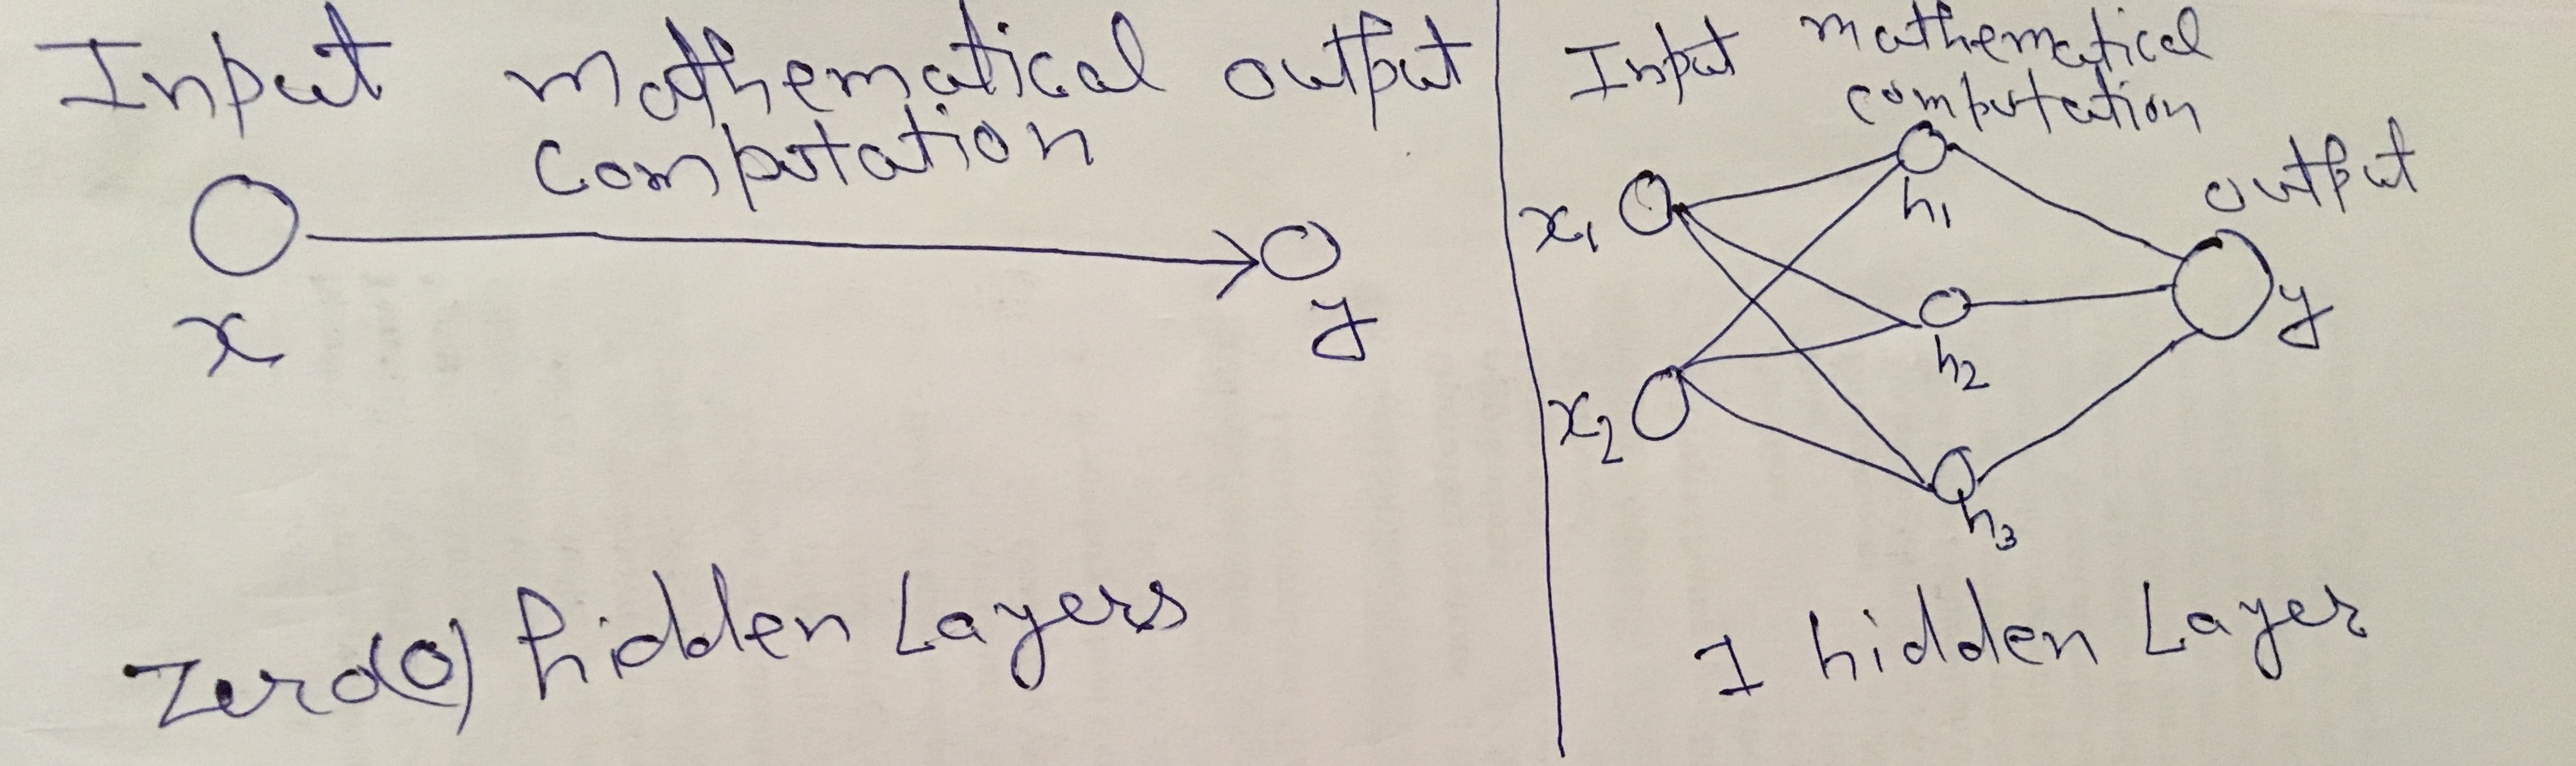 Input mathematical output
computation
x
y
Zero(0) hidden Layers
Input mathematical
computation
output
x1
h1
x2
h2
y
h3
1 hidden Layer